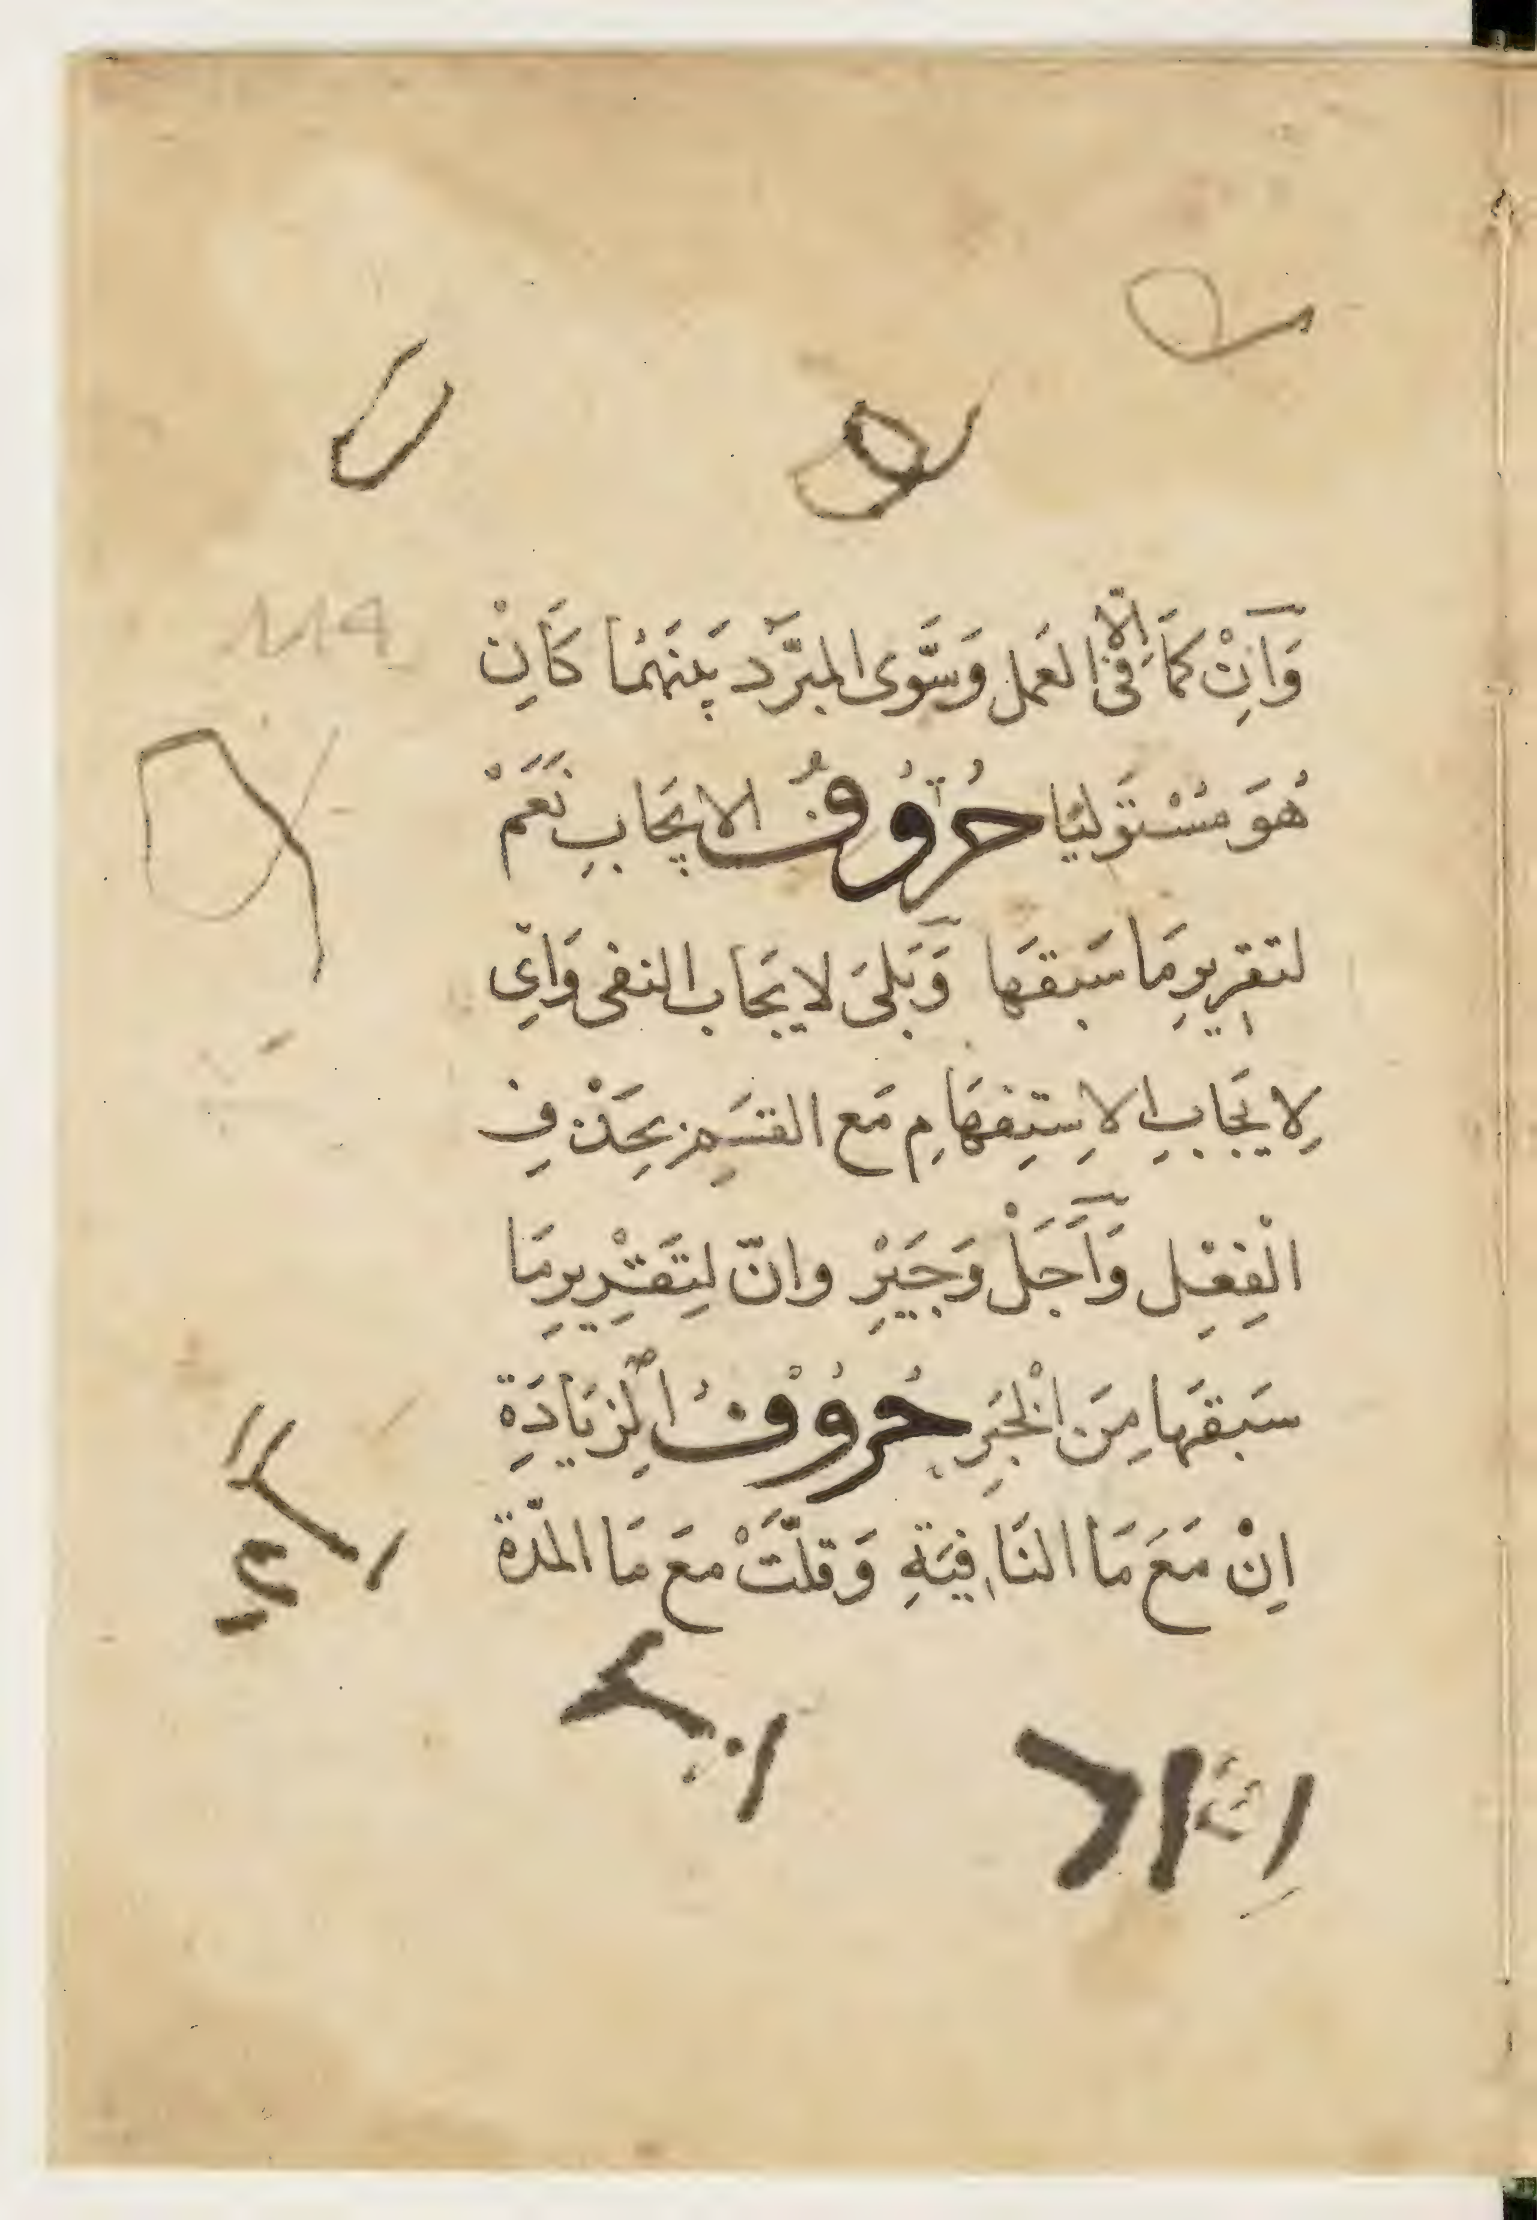 وَاِنْ كَمَا فِى العَمل وَسَّوى المبَرَّد بَينَهُمَا كَانِْ
إلّا
هُوَ مُسْتَوَليًا حُرُوفُ الايجَابِ نَعَمْ
لتقرِيرِ مَا سَبقهَا وَبَلىَ لايجَاب النفى وَاِى
لِايجَابِ الاِستِفهَامِ مَع القسَمِ بحَذْفِ
الْفِعْلِ وَاَجَلْ وَجَيْرِ وانّ لِتَقْرِيرِ مَا
سَبقَهَا مِنَ الْخبَرِ حُرُوْفُ الزِيَادَةِ
اِنْ مَعَ مَا النَافِيَةِ وَقلّتَْ معَ مَا المدّة